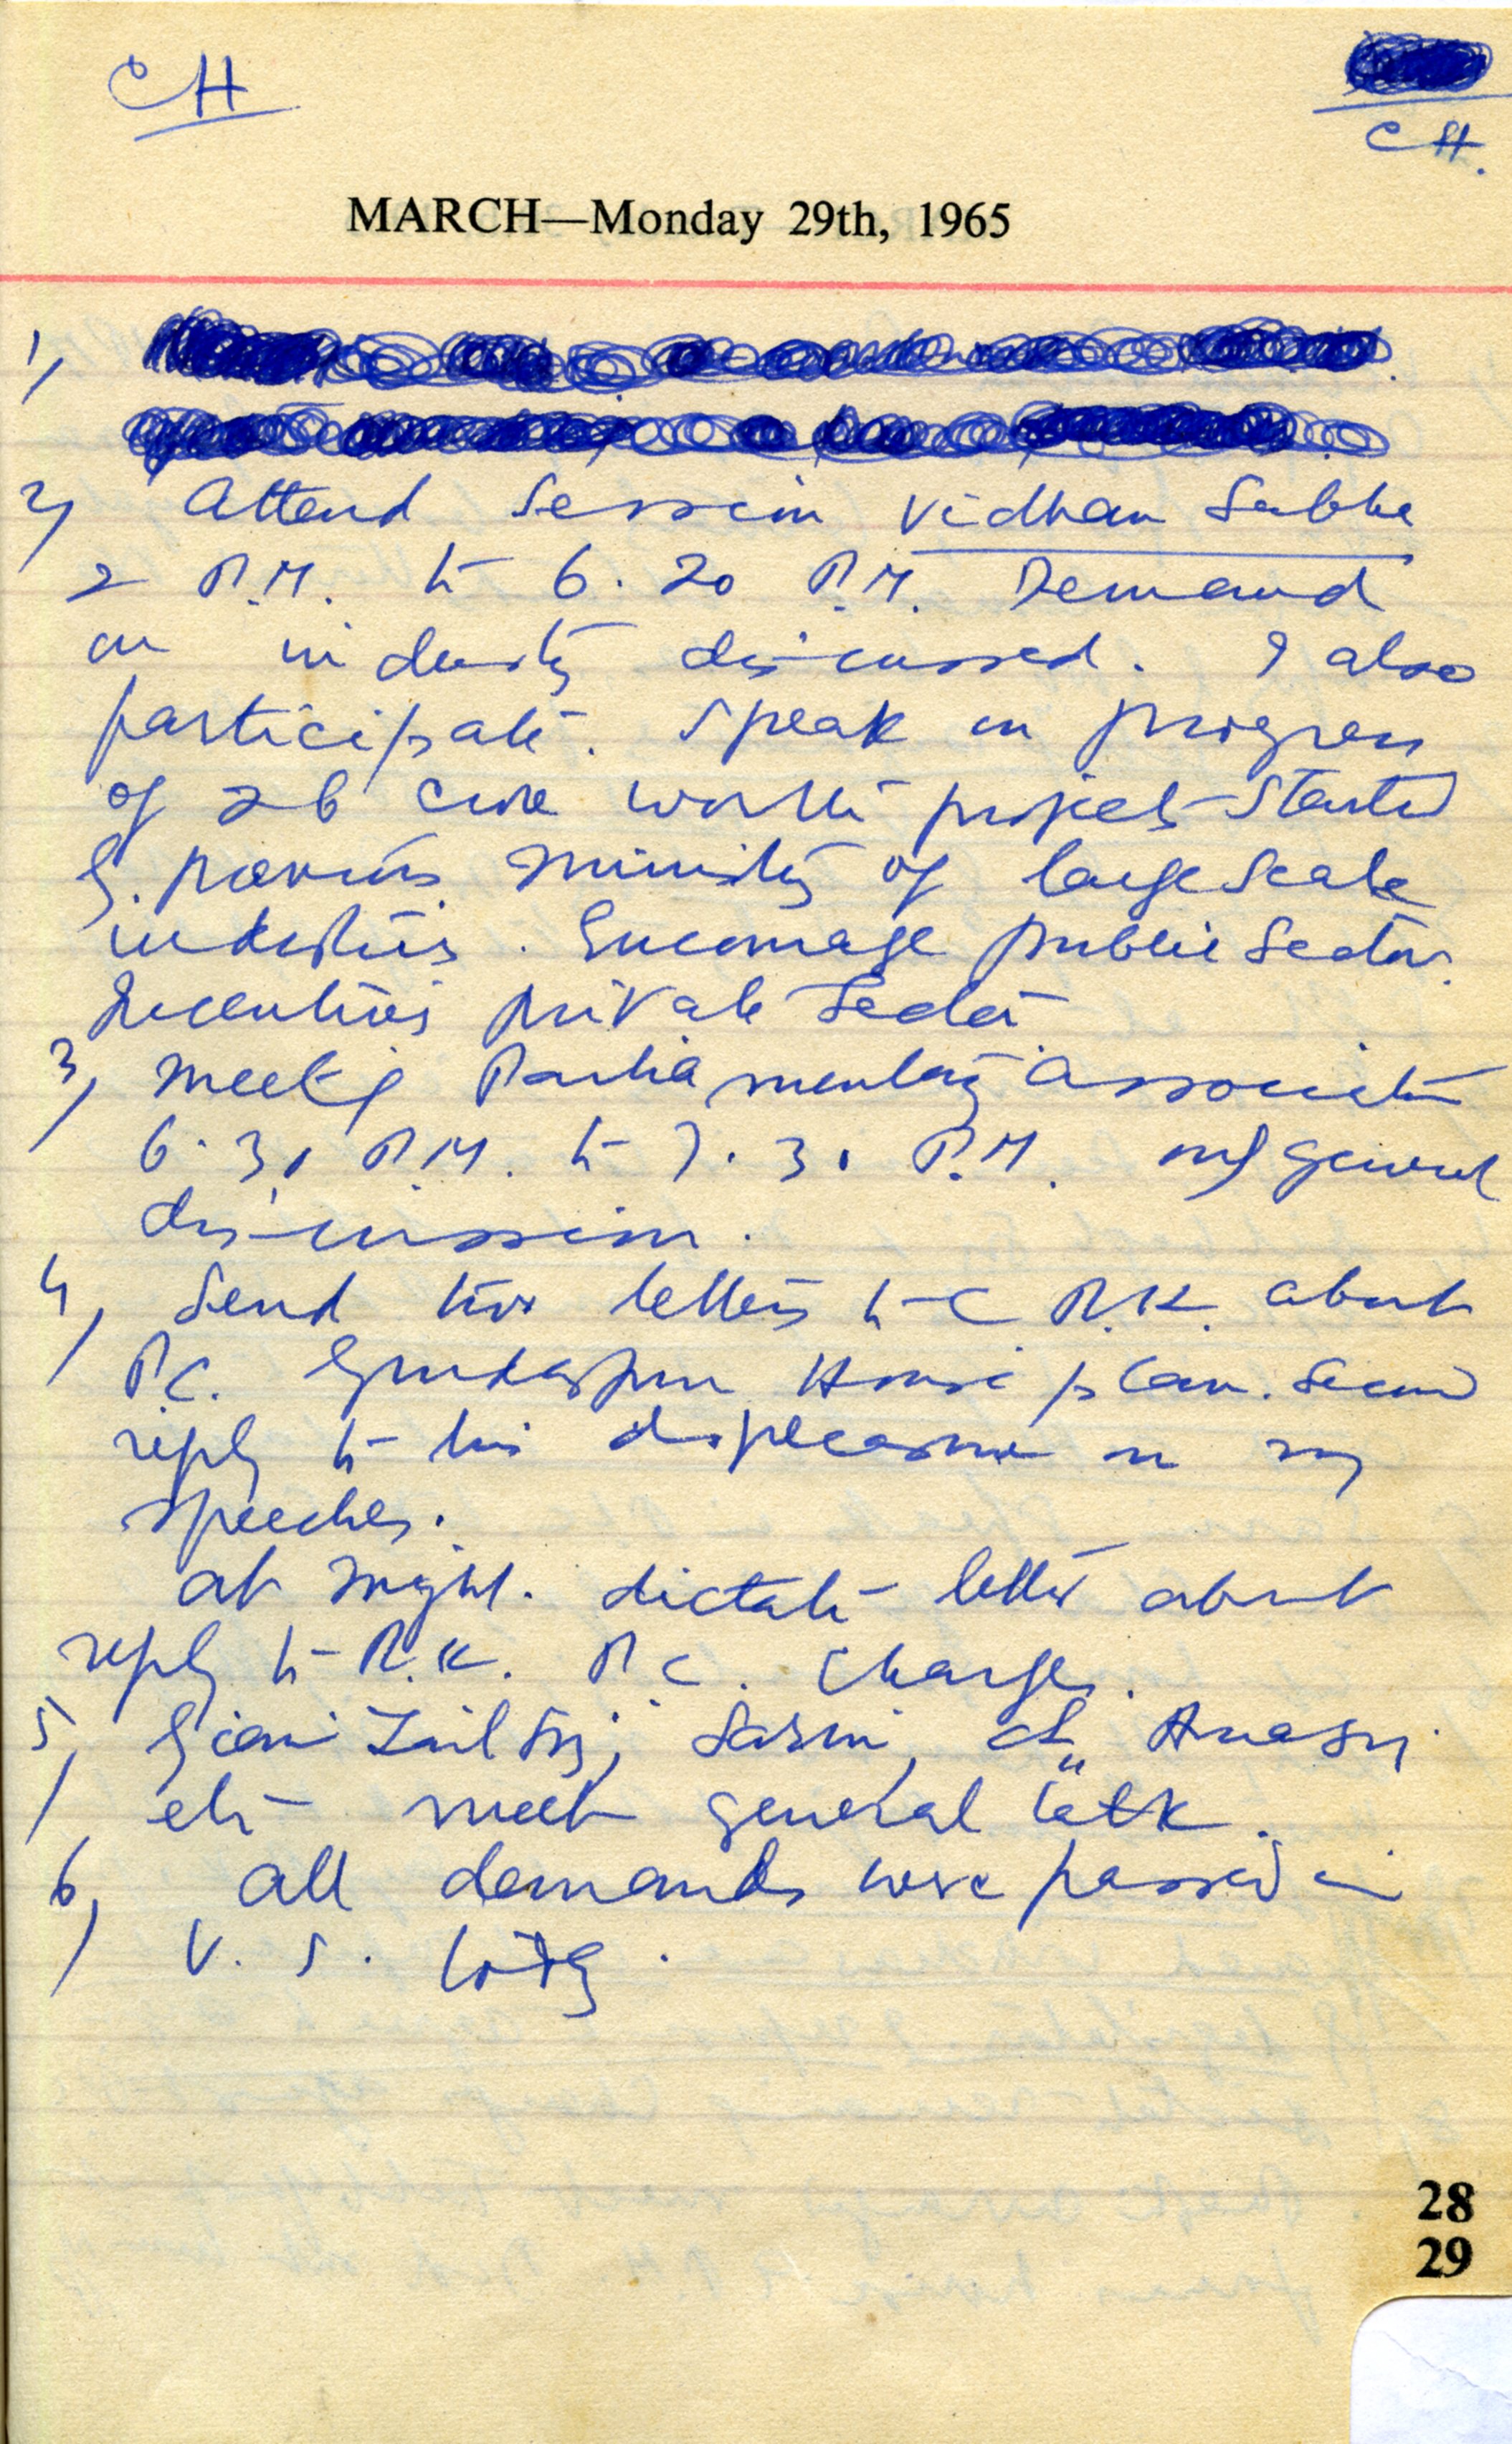 CH
CH.
MARCH—Monday 29th, 1965
1,
2, Attend Session Vidhan Sabha
2 P.M. to 6.20 P.M. Demand
on industry discussed. I also
participate. Speak on progress
of 26 crore worth projects started
by previous ministry of large scale
industries. Encourage public sector.
Incentives private sector
3, meeting Parliamentary Association
6.30 P.M. to 7.30 P.M. only general
discussion.
4, Send two letters to C R.K. about
P.C. Gurdaspur House plan. Second
reply to his displeasure on my
speeches.
at night. dictate letter about
reply to R.K. P.C. Charges.
5, Giani Zail Singh,
etc meet general talk.
6, All demands were passed in
V. S. today.
28
29